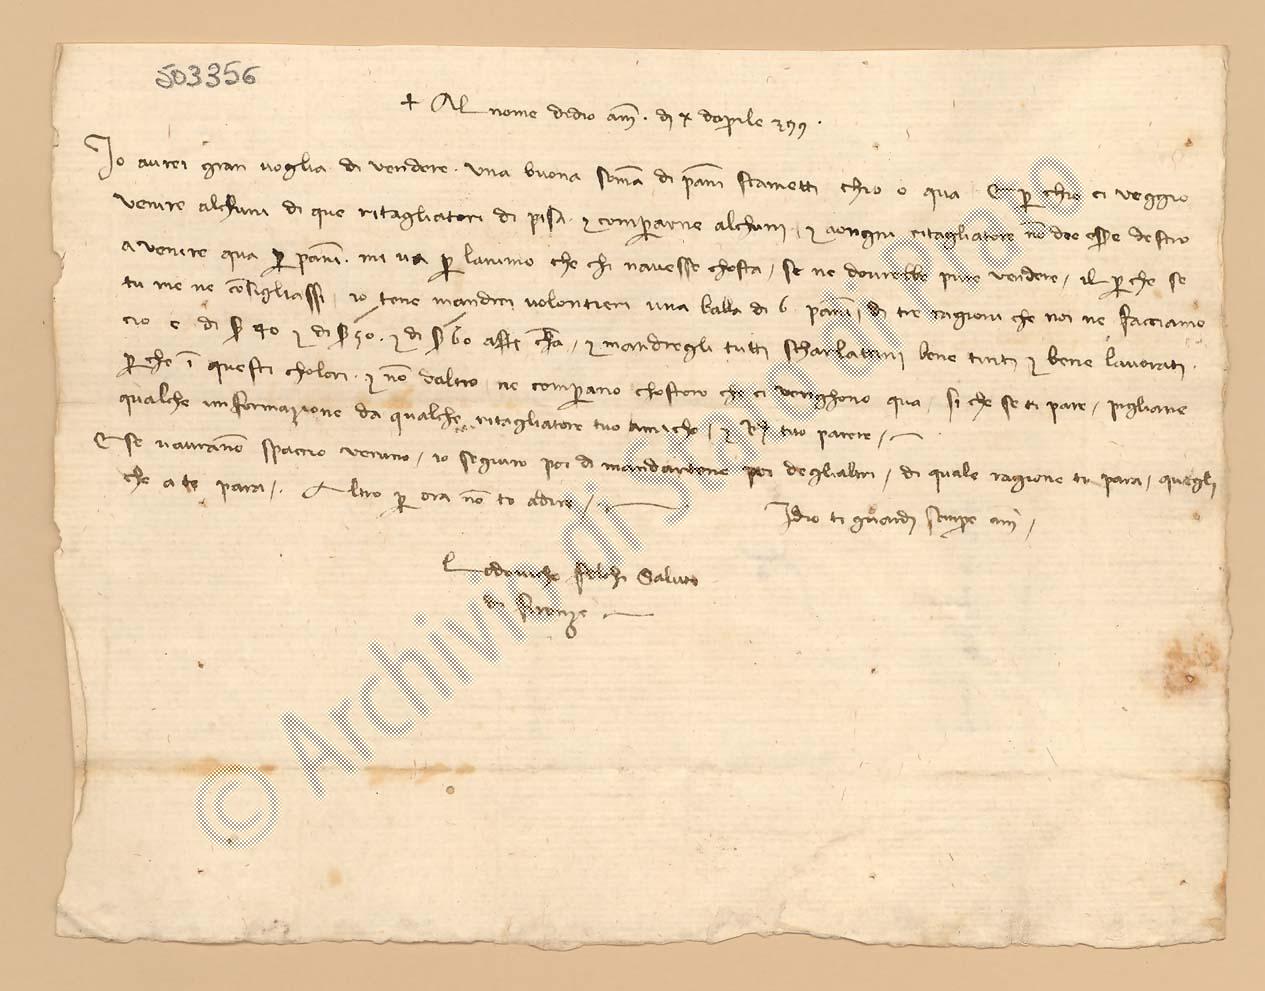 503356
+ Al nome di dio am̃. dì x d'aprile 399.
Io aurei gran voglia di vendere. una buona soma di panni stametti chio o qua. E per chio ci veggio
venire alchuni di que ritagliatori di pisa. & comperarne alchuni, & aongni ritagliatore nõ dee esse destro
a venire qua p pãni. mi va p lanimo che chi navesse chosta, se ne dourebbe pure vendere, il pche se
tu me ne chõsigliassi, io tene manderei volontieri una balla di 6 pãni, di tre ragioni che noi ne facciamo
cio e di 40 & di 50. & di 60 & mandregli tutti scharlattini bene tinti & bene lavorati.
pche ĩ questi cholori. & nõ daltro, ne comperano chostoro che ci venghono qua, si che se ti pare, pigliane
qualche informazione da qualche ritagliatore tuo amicho, & tuo parere,
E se navranõ spaccio veruno, io seguiro poi di mandartene poi deglialtri, di quale ragione ti para, quegli
che a te para,. Altro p ora nõ to adire,
Idio ti guardi sempre am̃,
Lodovicho saluto
di firenze
© Archivio di Stato di Prato